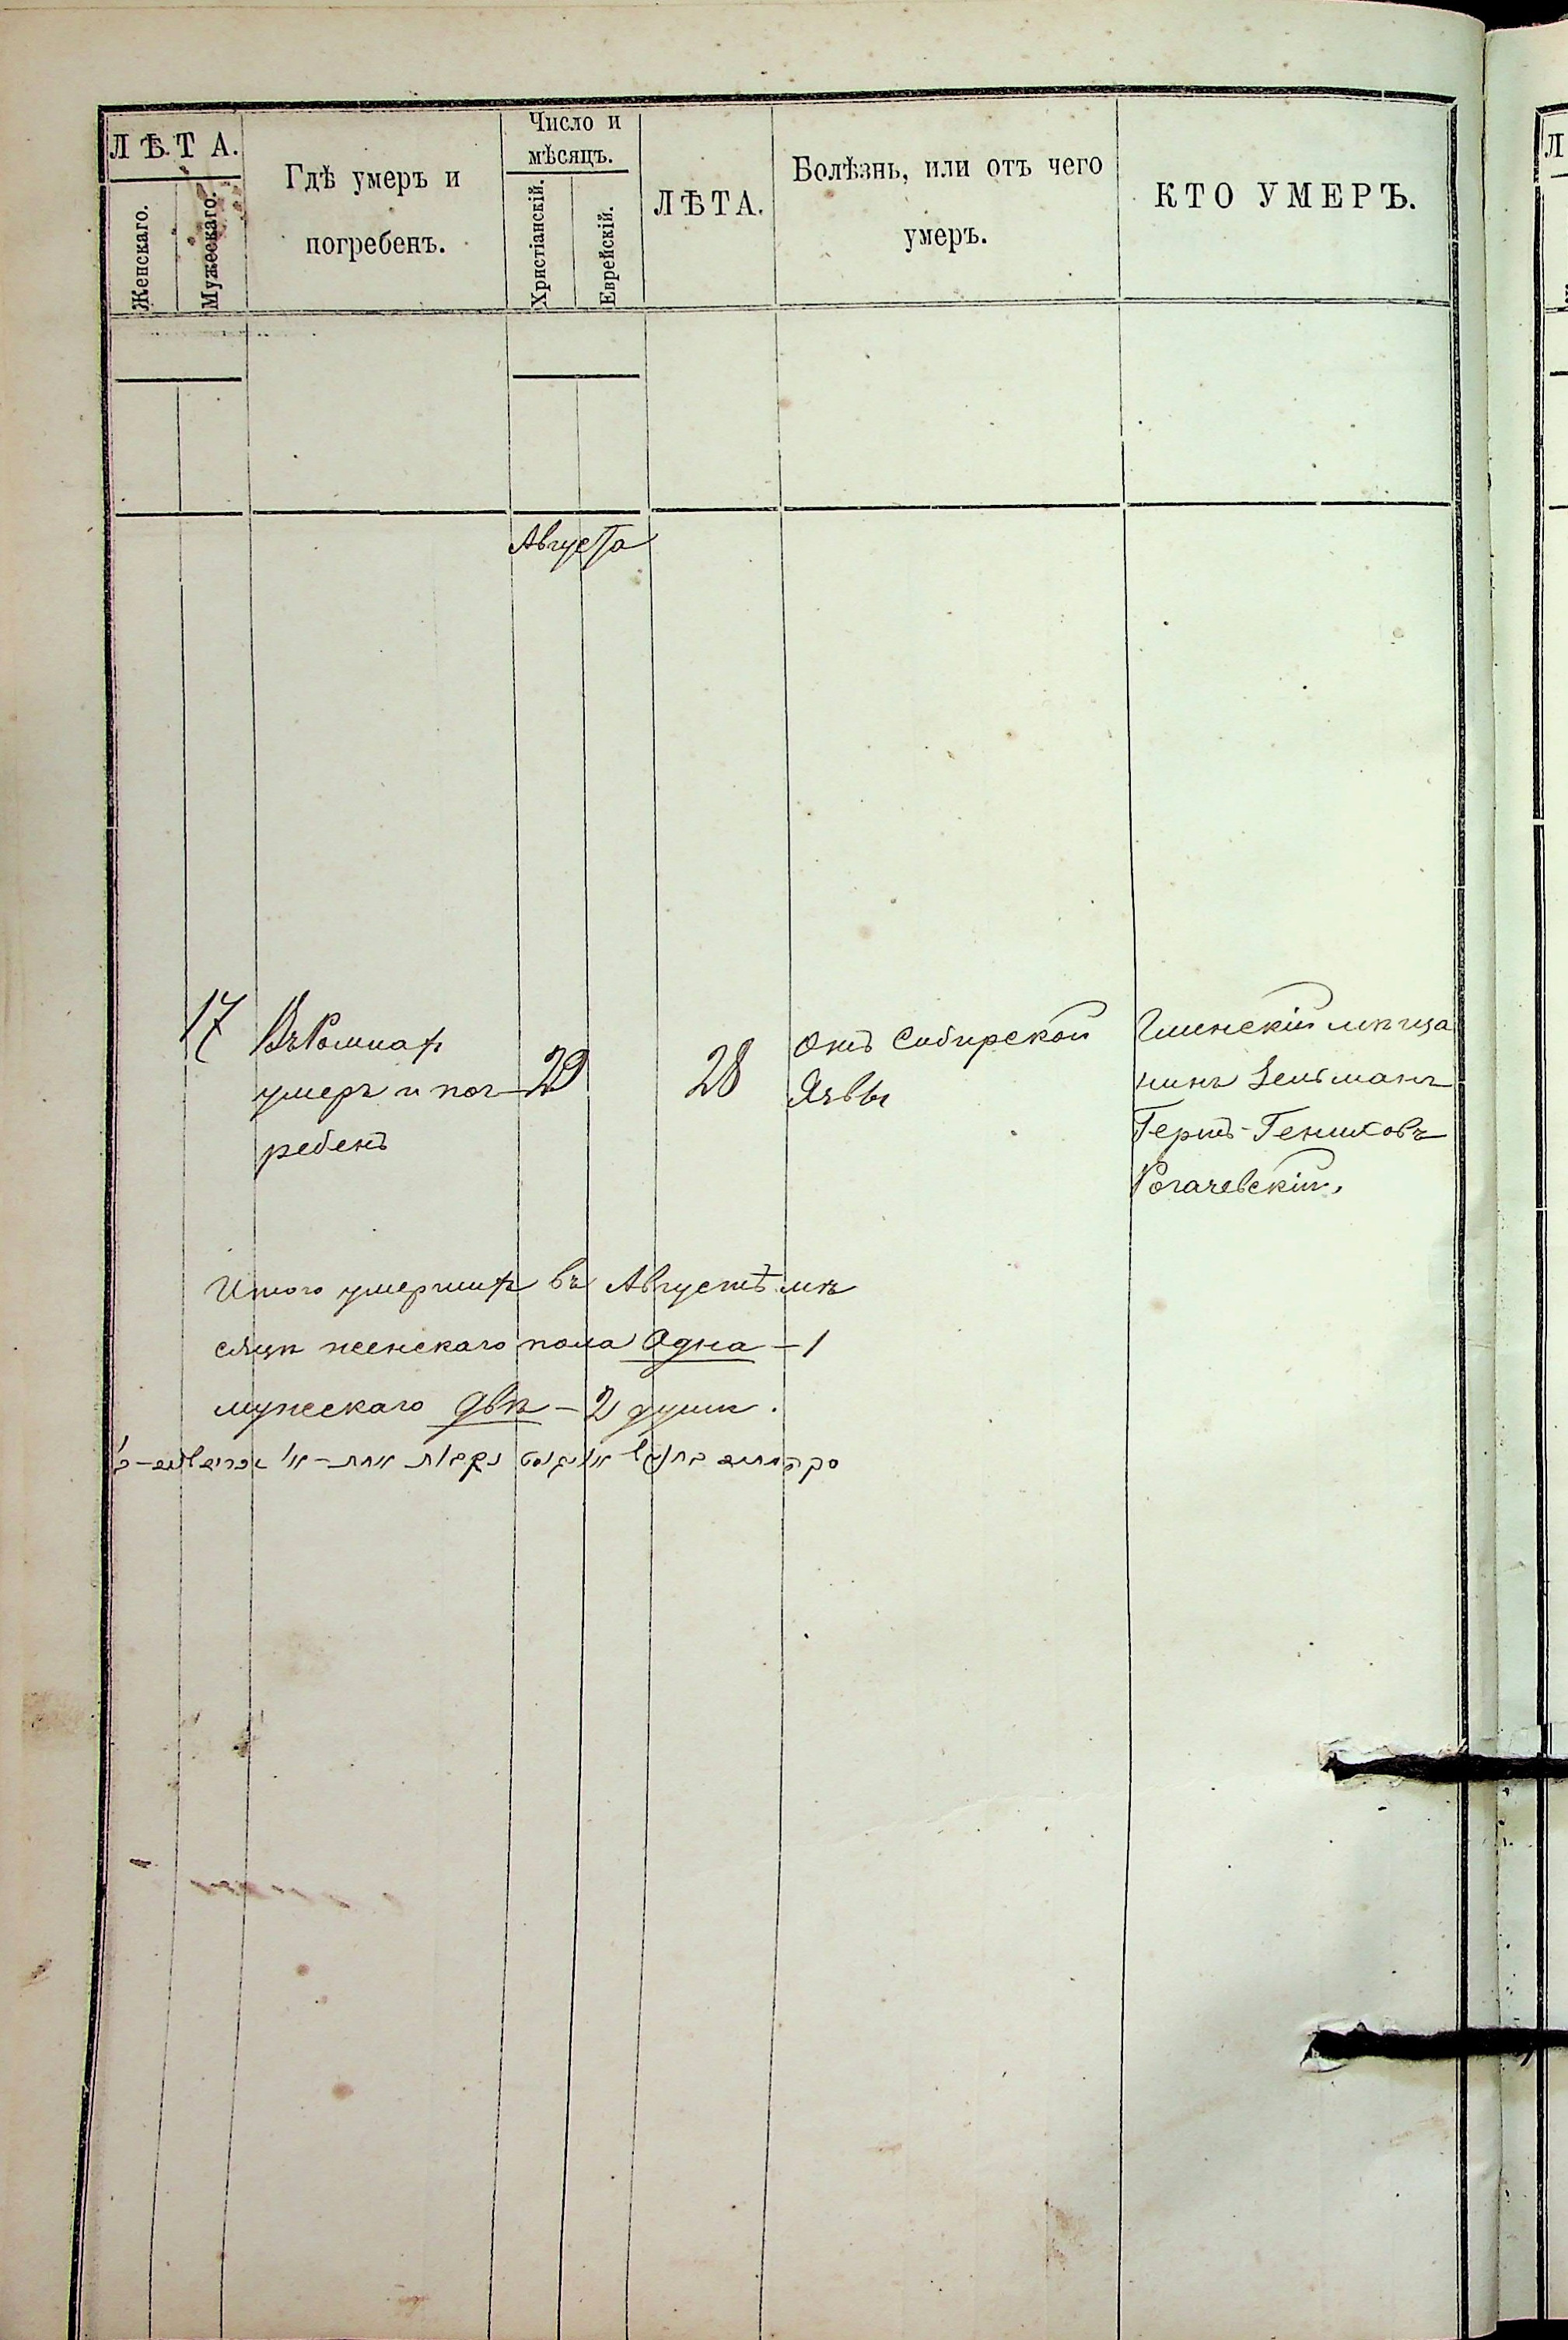 ЛѢТА.
Женскаго.
Мужескаго.
Гдѣ умеръ и
погребенъ.
Число и
мѣсяцъ.
Христіанскій.
Еврейскій.
ЛѢТА.
Болѣзнь, или отъ чего
умеръ.
КТО УМЕРЪ.
Августа
17
Въ Ромнах
умеръ и пог
ребенъ
29
28
Отъ Сибирской
Язвы
Глинскій мѣща
нинъ Зельманъ
Герцъ-Гениховъ
Рогачевскій,
Итого умерших въ Августѣ мѣ
сяцѣ женскаго пола Одна - 1
мужескаго двѣ - 2 души.